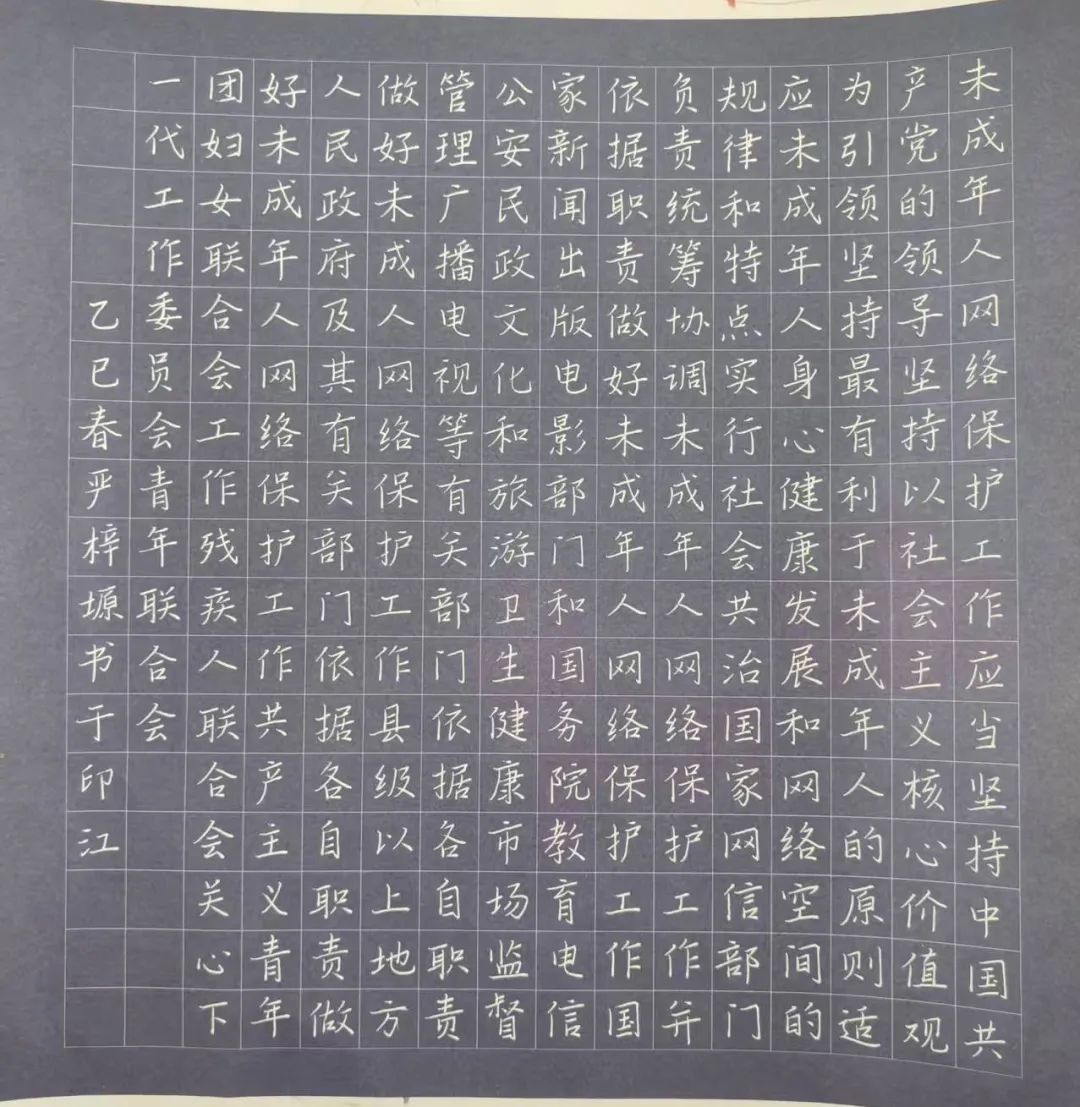 未成年人网络保护工作应当坚持中国共
产党的领导坚持以社会主义核心价值观
为引领坚持最有利于未成年人的原则适
应未成年人身心健康发展和网络空间的
规律和特点实行社会共治国家网信部门
负责统筹协调未成年人网络保护工作并
依据职责做好未成年人网络保护工作国
家新闻出版电影部门和国务院教育电信
公安民政文化和旅游卫生健康市场监督
管理广播电视等有关部门依据各自职责
做好未成人网络保护工作县级以上地方
人民政府及其有关部门依据各自职责做
好未成年人网络保护工作共产主义青年
团妇女联合会工作残疾人联合会关心下
一代工作委员会青年联合会
乙巳春严梓塬书于印江